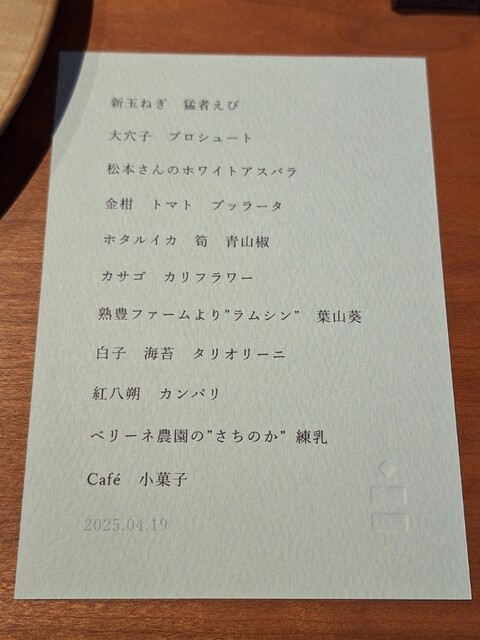 新玉ねぎ　猛者えび
大穴子　プロシュート
松本さんのホワイトアスパラ
金柑　トマト　ブッラータ
ホタルイカ　筍　青山椒
カサゴ　カリフラワー
熟豊ファームより”ラムシン”　葉山葵
白子　海苔　タリオリーニ
紅八朔　カンパリ
ベリーネ農園の”さちのか” 練乳
Café　小菓子
2025.04.19